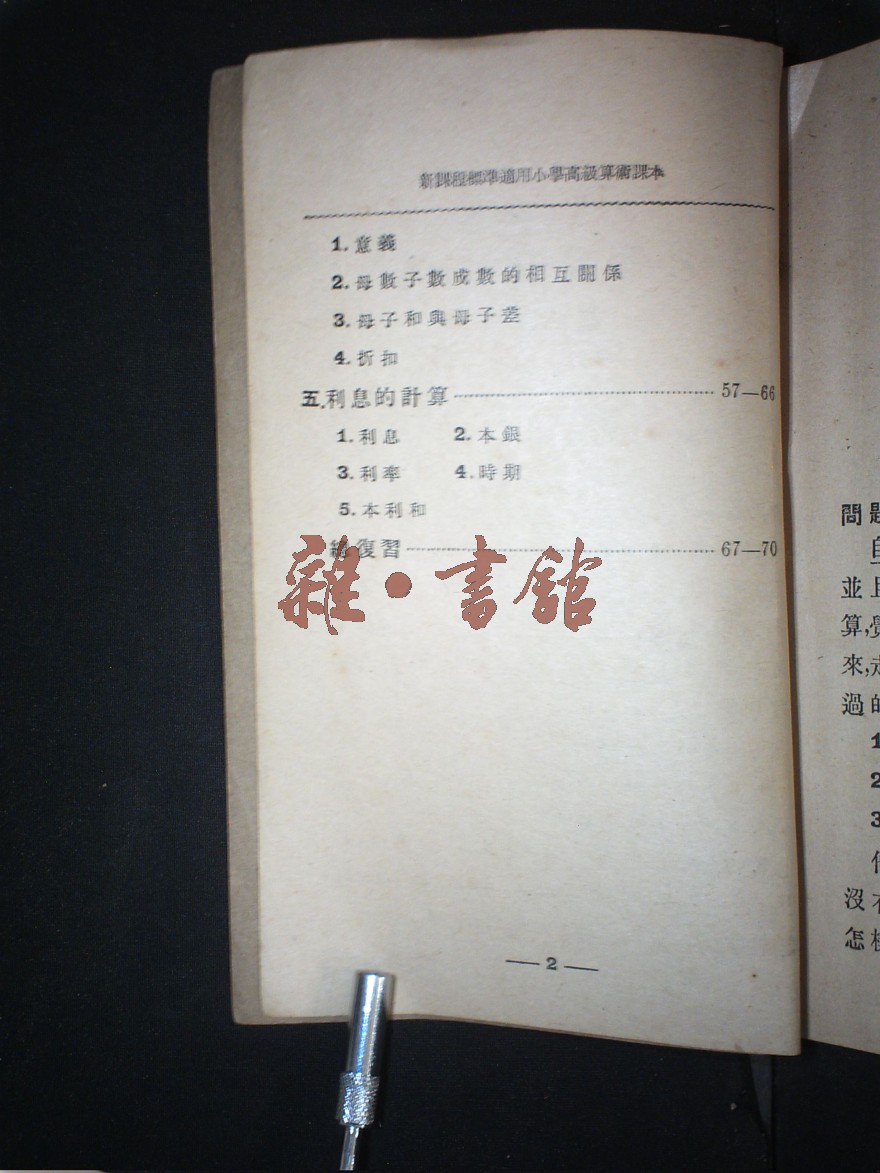 新課程標準適用小學高級算術課本
1. 意義
2. 母數子數成數的相互關係
3. 母子和與母子差
4. 折扣
五.利息的計算 57—66
1. 利息 2. 本銀
3. 利率 4. 時期
5. 本利和
總復習 67—70
雜·書館
— 2 —
問題
並且
算,覺
來,走
過的
1
2
3
沒有
怎樣